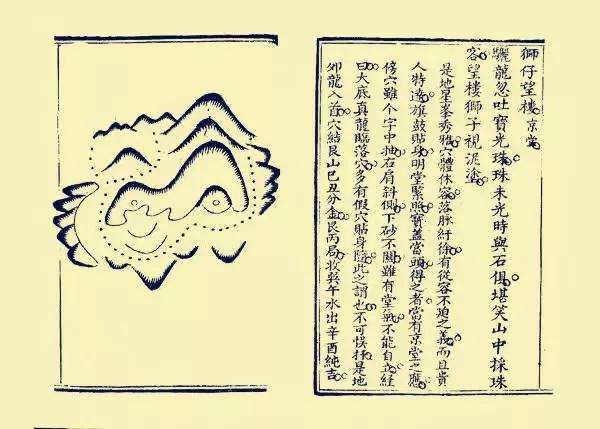 獅仔望樓 京堂
驪龍忽吐寶光珠珠未光時與石俱堪笑山中採珠
客望樓獅子視泥塗
是地星峯秀雅穴體休容落脉紆徐有從容不廹之義而且貴
人特達旗鼓貼身明堂緊照寶蓋當頭得之者當有京堂之應
傍穴雖个字中抽右肩斜側下砂不關雖有堂氣不能自立經
曰大底真龍臨落穴多有假穴貼身隨此之謂也不可悞扦是地
夘龍入首穴結艮山巳丑分金艮丙局收巽午水出辛酉純吉